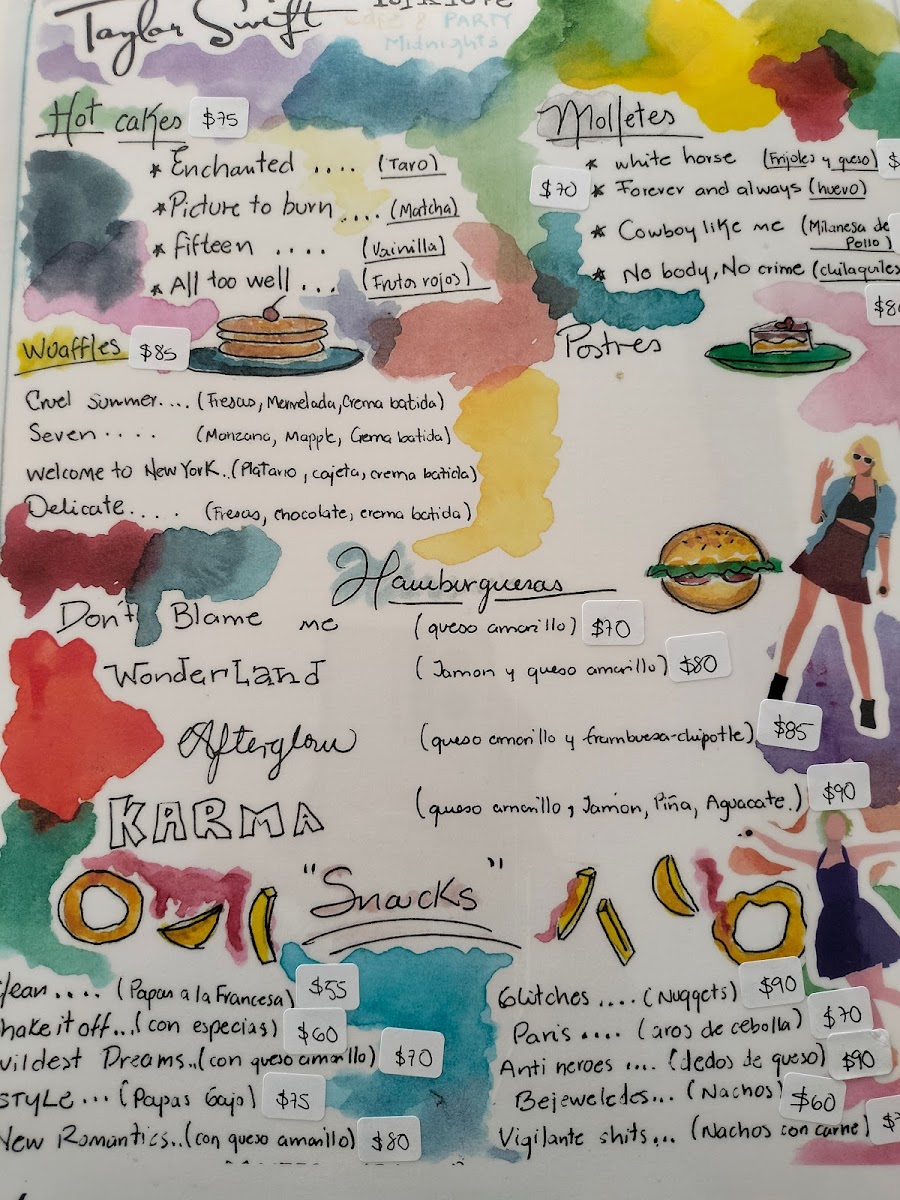 Taylor Swift
folklore
Cafe & PARTY
Midnights
Hot cakes $75
* Enchanted .... (Taro)
* Picture to burn.... (Matcha)
* fifteen .... (Vainilla)
* All too well ... (Frutos rojos)
Molletes
* white horse (Frijoles y queso) $
$70 * Forever and always (huevo)
* Cowboy like me (Milanesa de
Pollo)
* No body, No crime (chilaquiles
$8
Woaffles $85
Cruel summer.... (Fresas, Mermelada, Crema batida)
Seven.... (Manzana, Mapple, Crema batida)
Welcome to New York.. (Platano, cajeta, crema batida)
Delicate.... (Fresas, chocolate, crema batida)
Postres
Hamburguesas
Don't Blame me (queso amarillo) $70
WonderLand (Jamon y queso amarillo) $80
Afterglow (queso amarillo y frambuesa-chipotle) $85
KARMA (queso amarillo, Jamon, Piña, Aguacate.) $90
"Snacks"
lean.... (Papas a la Francesa) $55
hake it off...(con especias) $60
wildest Dreams..(con queso amarillo) $70
STYLE... (Papas Gajo) $75
New Romantics..(con queso amarillo) $80
Glitches.... (Nuggets) $90
Paris.... (aros de cebolla) $70
Anti heroes .... (dedos de queso) $90
Bejeweledes... (Nachos) $60
Vigilante shits... (Nachos con carne) $7